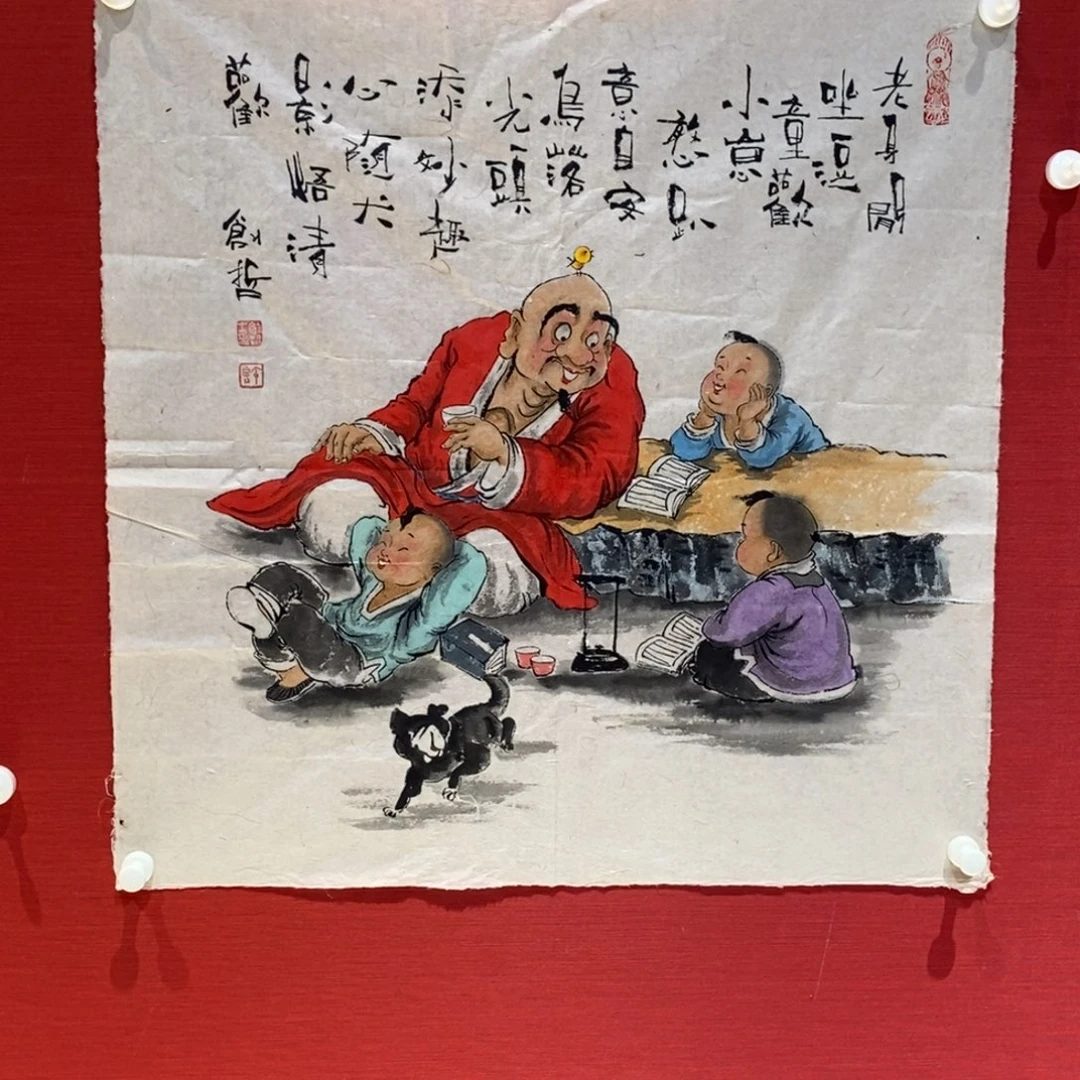 老身閒
坐逗
童歡
小崽
憨趴
意自安
鳥落
光頭
添妙趣
心隨犬
影悟清
歡
創哲